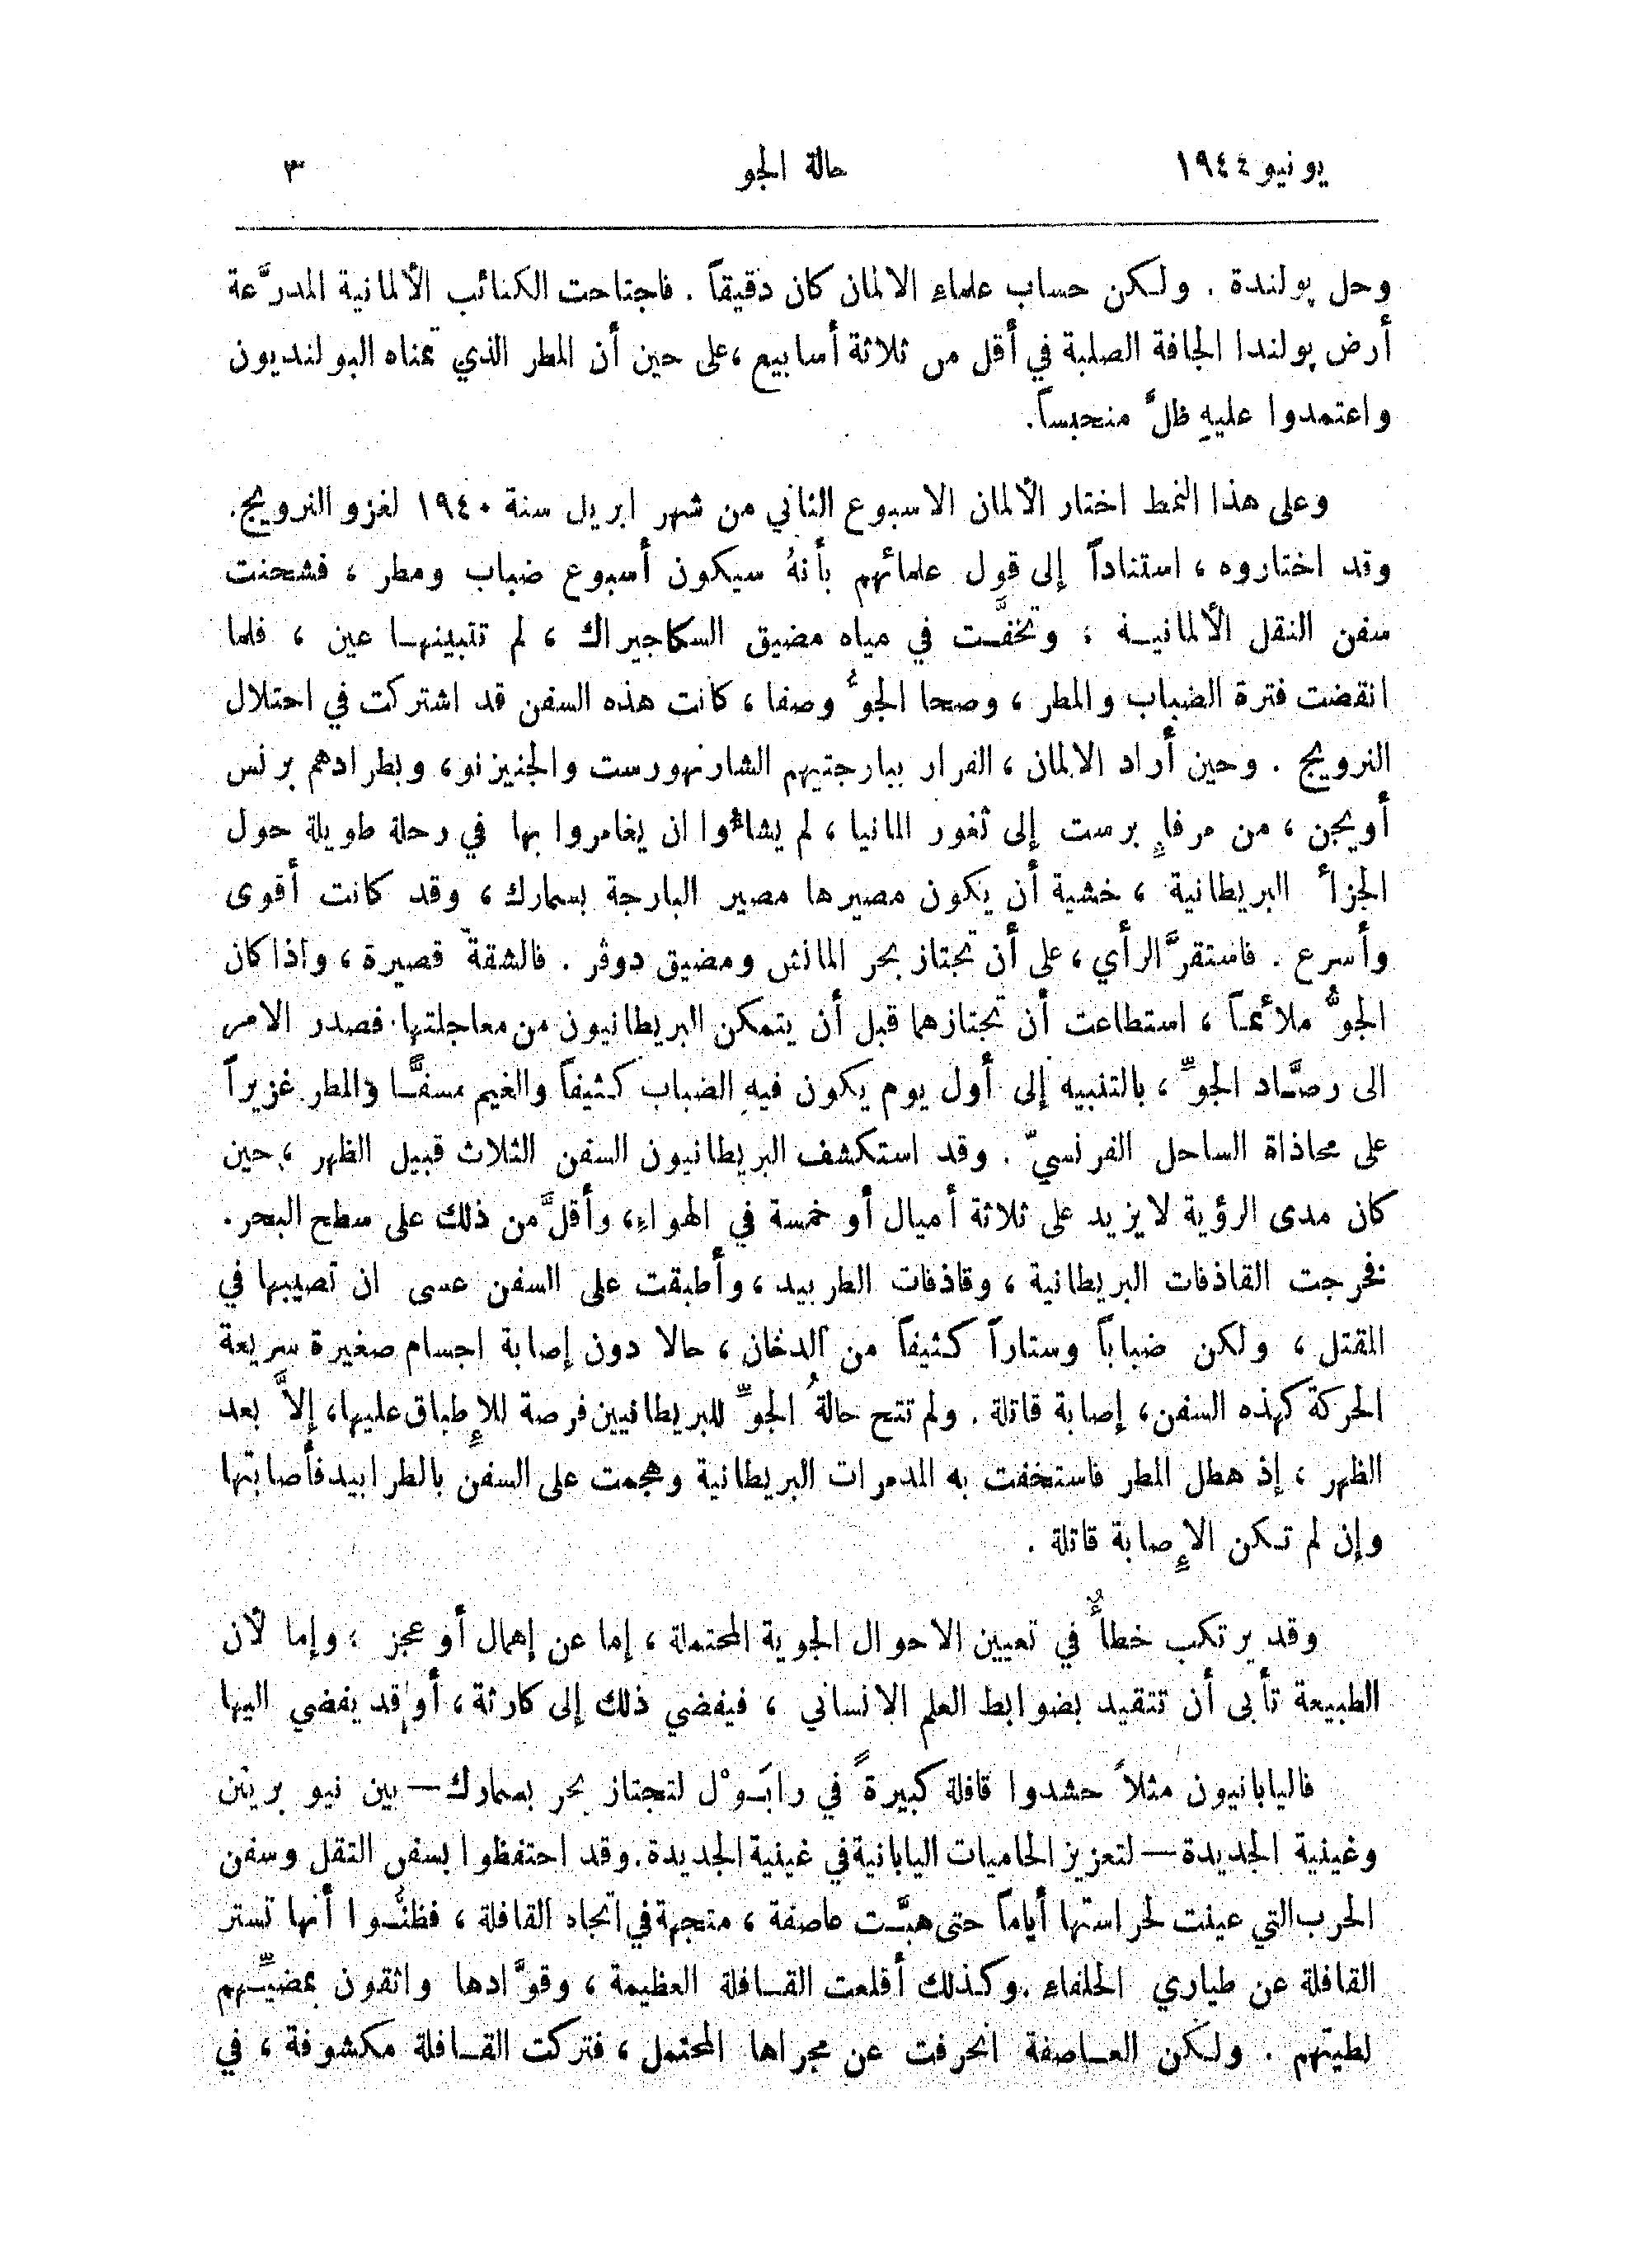 يونيو ١٩٤٤ حالة الجو ٣
وحل پولندة . ولكن حساب علماء الالمان كان دقيقاً . فاجتاحت الكتائب الألمانية المدرَّعة
أرض پولندا الجافة الصلبة في أقل من ثلاثة أسابيع ، على حين أن المطر الذي تمناه البولنديون
واعتمدوا عليهِ ظلَّ منحبساً .
وعلى هذا النمط اختار الألمان الاسبوع الثاني من شهر ابريل سنة ١٩٤٠ لغزو النرويج .
وقد اختاروه ، استناداً إلى قول علمائهم بأنهُ سيكون أسبوع ضباب ومطر ، فشحنت
سفن النقل الألمانيـة ؛ وتخفَّـت في مياه مضيق السكاجيراك ، لم تتبينهـا عين ، فلما
انقضت فترة الضباب والمطر ، وصحا الجوُّ وصفا ، كانت هذه السفن قد اشتركت في احتلال
النرويج . وحين أراد الالمان ، الفرار ببارجتيهم الشارنهورست والجنيزنو ، وبطرادهم برنس
أويجن ، من مرفإٍ برست إلى ثغور المانيا ، لم يشاءُوا ان يغامروا بها في رحلة طويلة حول
الجزأ البريطانية ، خشية أن يكون مصيرها مصير البارجة بسمارك ، وقد كانت أقوى
وأسرع . فاستقرَّ الرأي ، على أن تجتاز بحر المانش ومضيق دوڤر . فالشقة قصيرة ، واذا كان
الجوُّ ملائمـاً ، استطاعت أن تجتازهما قبل أن يتمكن البريطانيون من معاجلتها . فصدر الامر
الى رصَّـاد الجوِّ ، بالتنبيه إلى أول يوم يكون فيهِ الضباب كثيفاً والغيم مسفًّـا والمطر غزيراً
على محاذاة الساحل الفرنسيّ . وقد استكشف البريطانيون السفن الثلاث قبيل الظهر ، حين
كان مدى الرؤية لا يزيد على ثلاثة أميال أو خمسة في الهواءِ ، وأقلَّ من ذلك على سطح البحر .
فخرجت القاذفات البريطانية ، وقاذفات الطربيد ، وأطبقت على السفن عسى ان تصيبها في
المقتل ، ولكن ضباباً وستاراً كثيفاً من الدخان ، حالا دون إصابة اجسام صغيرة سريعة
الحركة كهذه السفن ، إصابة قاتلة . ولم تتح حالةُ الجوِّ للبريطانيين فرصة للإِطباق عليها ، إلاَّ بعد
الظهر ، إذ هطل المطر فاستخفت به المدمرات البريطانية وهجمت على السفن بالطرابيد فأصابتها
وإن لم تكن الإِصابة قاتلة .
وقد يرتكب خطأٌ في تعيين الاحوال الجوية المحتملة ، إما عن إهمال أو عجز ، وإما لأن
الطبيعة تأبى أن تتقيد بضوابط العلم الانساني ، فيفضي ذلك إلى كارثة ، أو قد يفضي اليها
فاليابانيون مثلاً حشدوا قافلة كبيرةً في رابَـوْل لتجتاز بحر بسمارك — بين نيو بريتن
وغينية الجديدة — لتعزيز الحاميات اليابانية في غينية الجديدة . وقد احتفظوا بسفن النقل وسفن
الحرب التي عينت لحراستها أياماً حتى هبَّـت عاصفة ، متجهة في اتجاه القافلة ، فظنُّـوا أنها تستر
القافلة عن طياري الحلفاء . وكذلك أقلعت القـافلة العظيمة ، وقوَّادها واثقون بمضيِّـهم
لطيتهم . ولكن العـاصفة انحرفت عن مجراها المحتمل ، فتركت القـافلة مكشوفة ، في